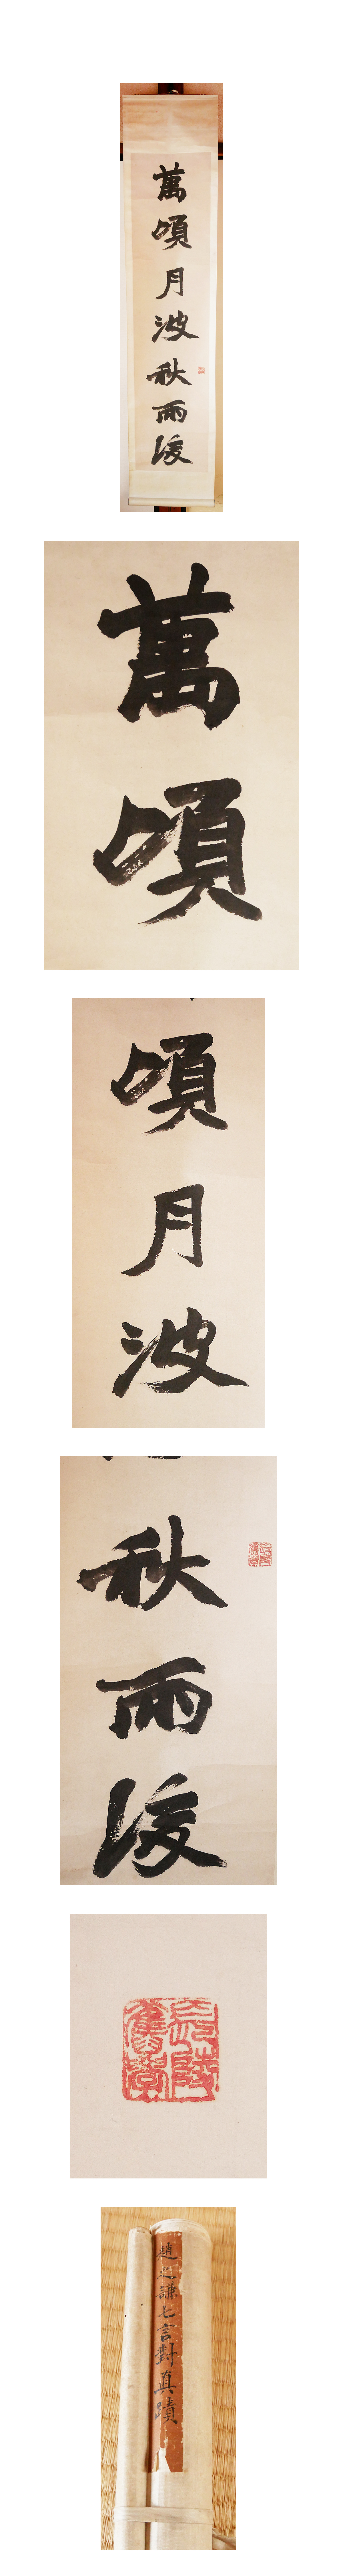 萬頃月波秋雨後
萬頃
頃月波
秋雨後
陵
舊學
趙之謙七言對真蹟